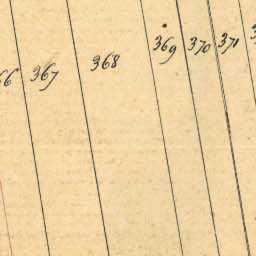 367 368 369 370 371